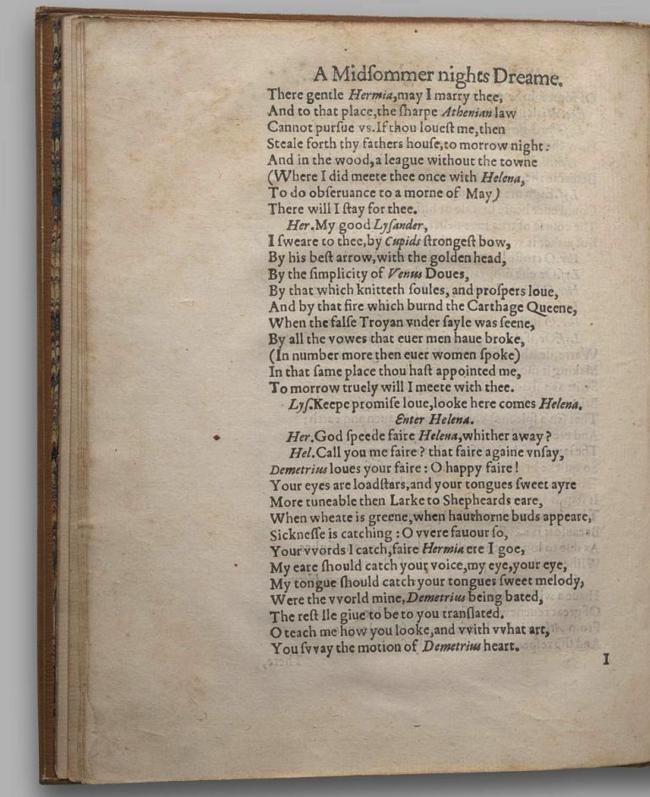 A Midſommer nights Dreame.
There gentle Hermia, may I marry thee,
And to that place, the ſharpe Athenian law
Cannot purſue vs. If thou loueſt me, then
Steale forth thy fathers houſe, to morrow night:
And in the wood, a league without the towne
(Where I did meete thee once with Helena,
To do obſeruance to a morne of May)
There will I ſtay for thee.
Her. My good Lyſander,
I ſweare to thee, by Cupids ſtrongeſt bow,
By his beſt arrow, with the golden head,
By the ſimplicity of Venus Doues,
By that which knitteth ſoules, and proſpers loue,
And by that fire which burnd the Carthage Queene,
When the falſe Troyan vnder ſayle was ſeene,
By all the vowes that euer men haue broke,
(In number more then euer women ſpoke)
In that ſame place thou haſt appointed me,
To morrow truely will I meete with thee.
Lyſ. Keepe promiſe loue, looke here comes Helena.
Enter Helena.
Her. God ſpeede faire Helena, whither away?
Hel. Call you me faire? that faire againe vnſay,
Demetrius loues your faire: O happy faire!
Your eyes are loadſtars, and your tongues ſweet ayre
More tuneable then Larke to Shepheards eare,
When wheate is greene, when hauthorne buds appeare,
Sickneſſe is catching: O vvere fauour ſo,
Your vvords I catch, faire Hermia ere I goe,
My eare ſhould catch your voice, my eye, your eye,
My tongue ſhould catch your tongues ſweet melody,
Were the vvorld mine, Demetrius being bated,
The reſt Ile giue to be to you tranſlated.
O teach me how you looke, and vvith vvhat art,
You ſvvay the motion of Demetrius heart.
I